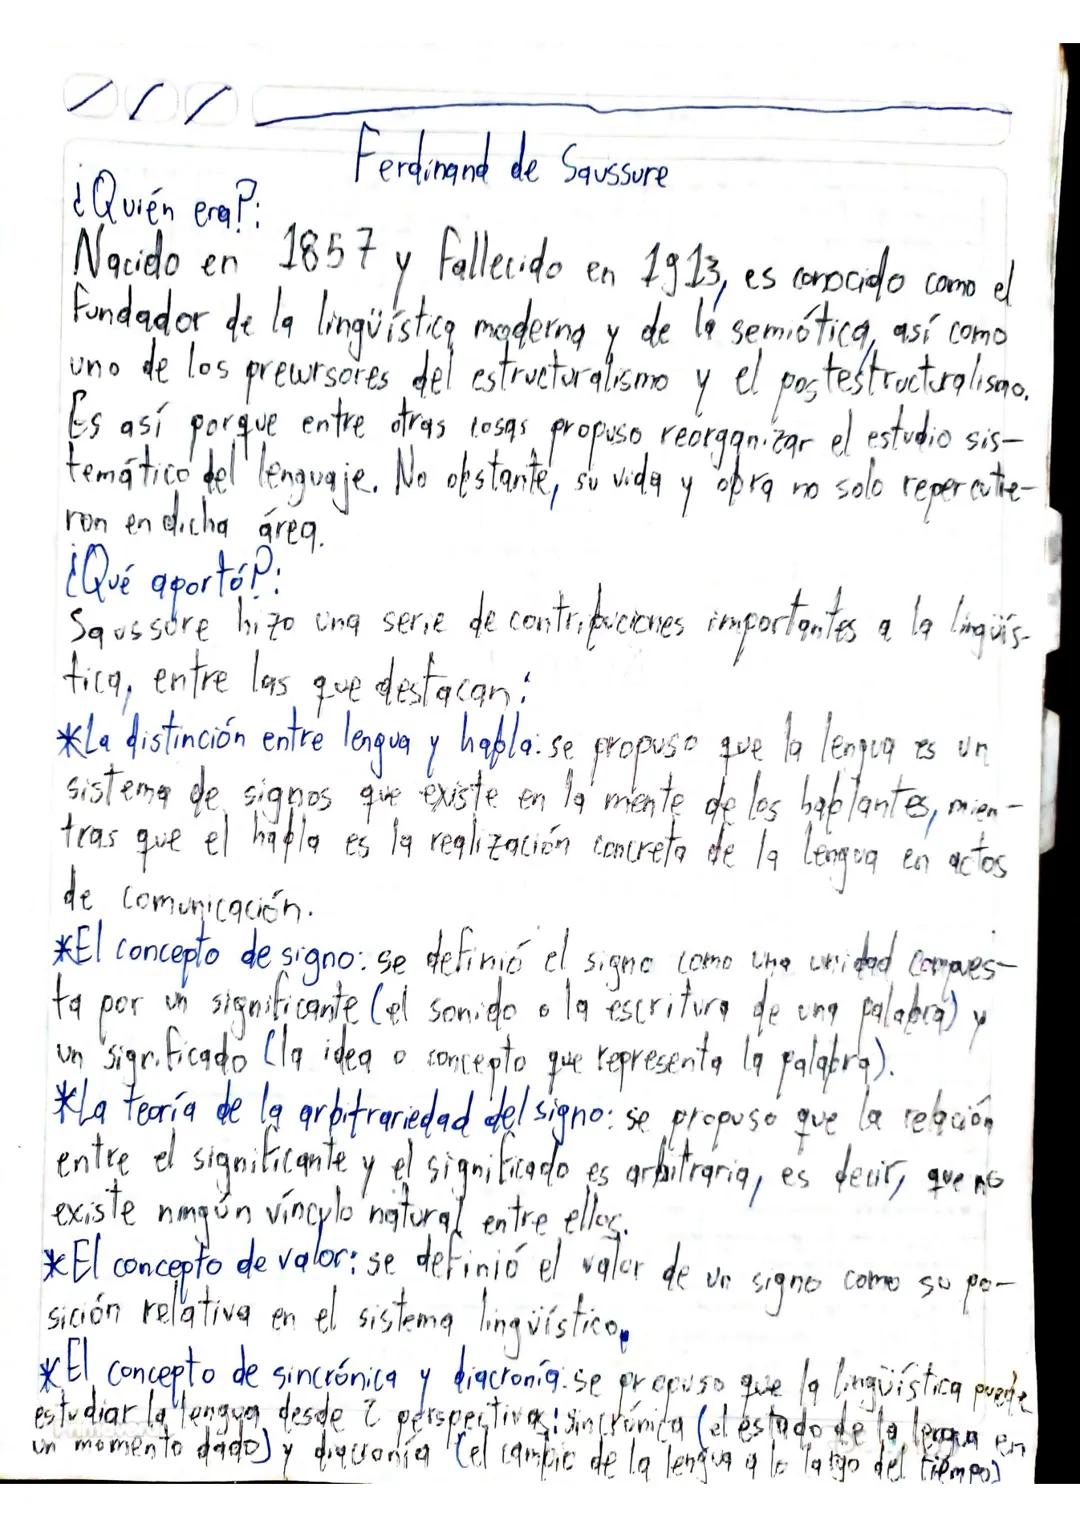 Ferdinand de Saussure
¿Quién era?:
Nacido en 1857 y fallecido en 1913, es conocido como el
fundador de la lingüística moderna y de la semiótica, así como
uno de los precursores del estructuralismo y el postestructuralismo.
Es así porque entre otras cosas propuso reorganizar el estudio sis-
temático del lenguaje. No obstante, su vida y obra no solo repercutie-
ron en dicha área.
¿Qué aportó?:
Saussure hizo una serie de contribuciones importantes a la lingüís-
tica, entre las que destacan:
*La distinción entre lengua y habla: se propuso que la lengua es un
sistema de signos que existe en la mente de los hablantes, mien-
tras que el habla es la realización concreta de la lengua en actos
de comunicación.
*El concepto de signo: se definió el signo como una unidad compues-
ta por un significante (el sonido o la escritura de una palabra) y
un significado (la idea o concepto que representa la palabra).
*La teoría de la arbitrariedad del signo: se propuso que la relación
entre el significante y el significado es arbitraria, es decir, que no
existe ningún vínculo natural entre ellos.
*El concepto de valor: se definió el valor de un signo como su po-
sición relativa en el sistema lingüístico.
*El concepto de sincrónica y diacronía: se propuso que la lingüística puede
estudiar la lengua desde 2 perspectivas: sincrónica (el estado de la lengua en
un momento dado) y diacronía (el cambio de la lengua a lo largo del tiempo)